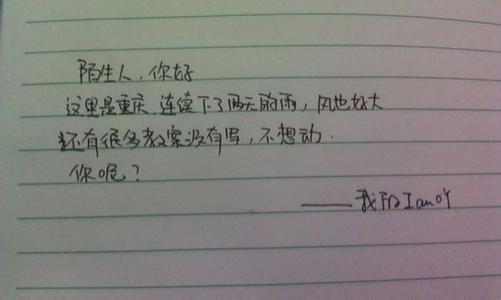 陌生人，你好
这里是重庆，连续下了两天的雨，风也好大
还有很多教案没有写，不想动.
你呢？
——我Ian吖